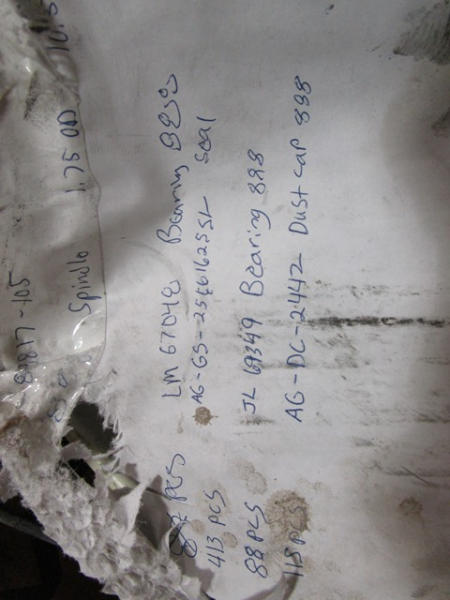 Spindle 1.75 OD
PCS LM 67048 Bearing
413 PCS AG-GS-25601625SL Seal
88 PCS JL 69349 Bearing 898
118 PCS AG-DC-2442 Dust cap 898